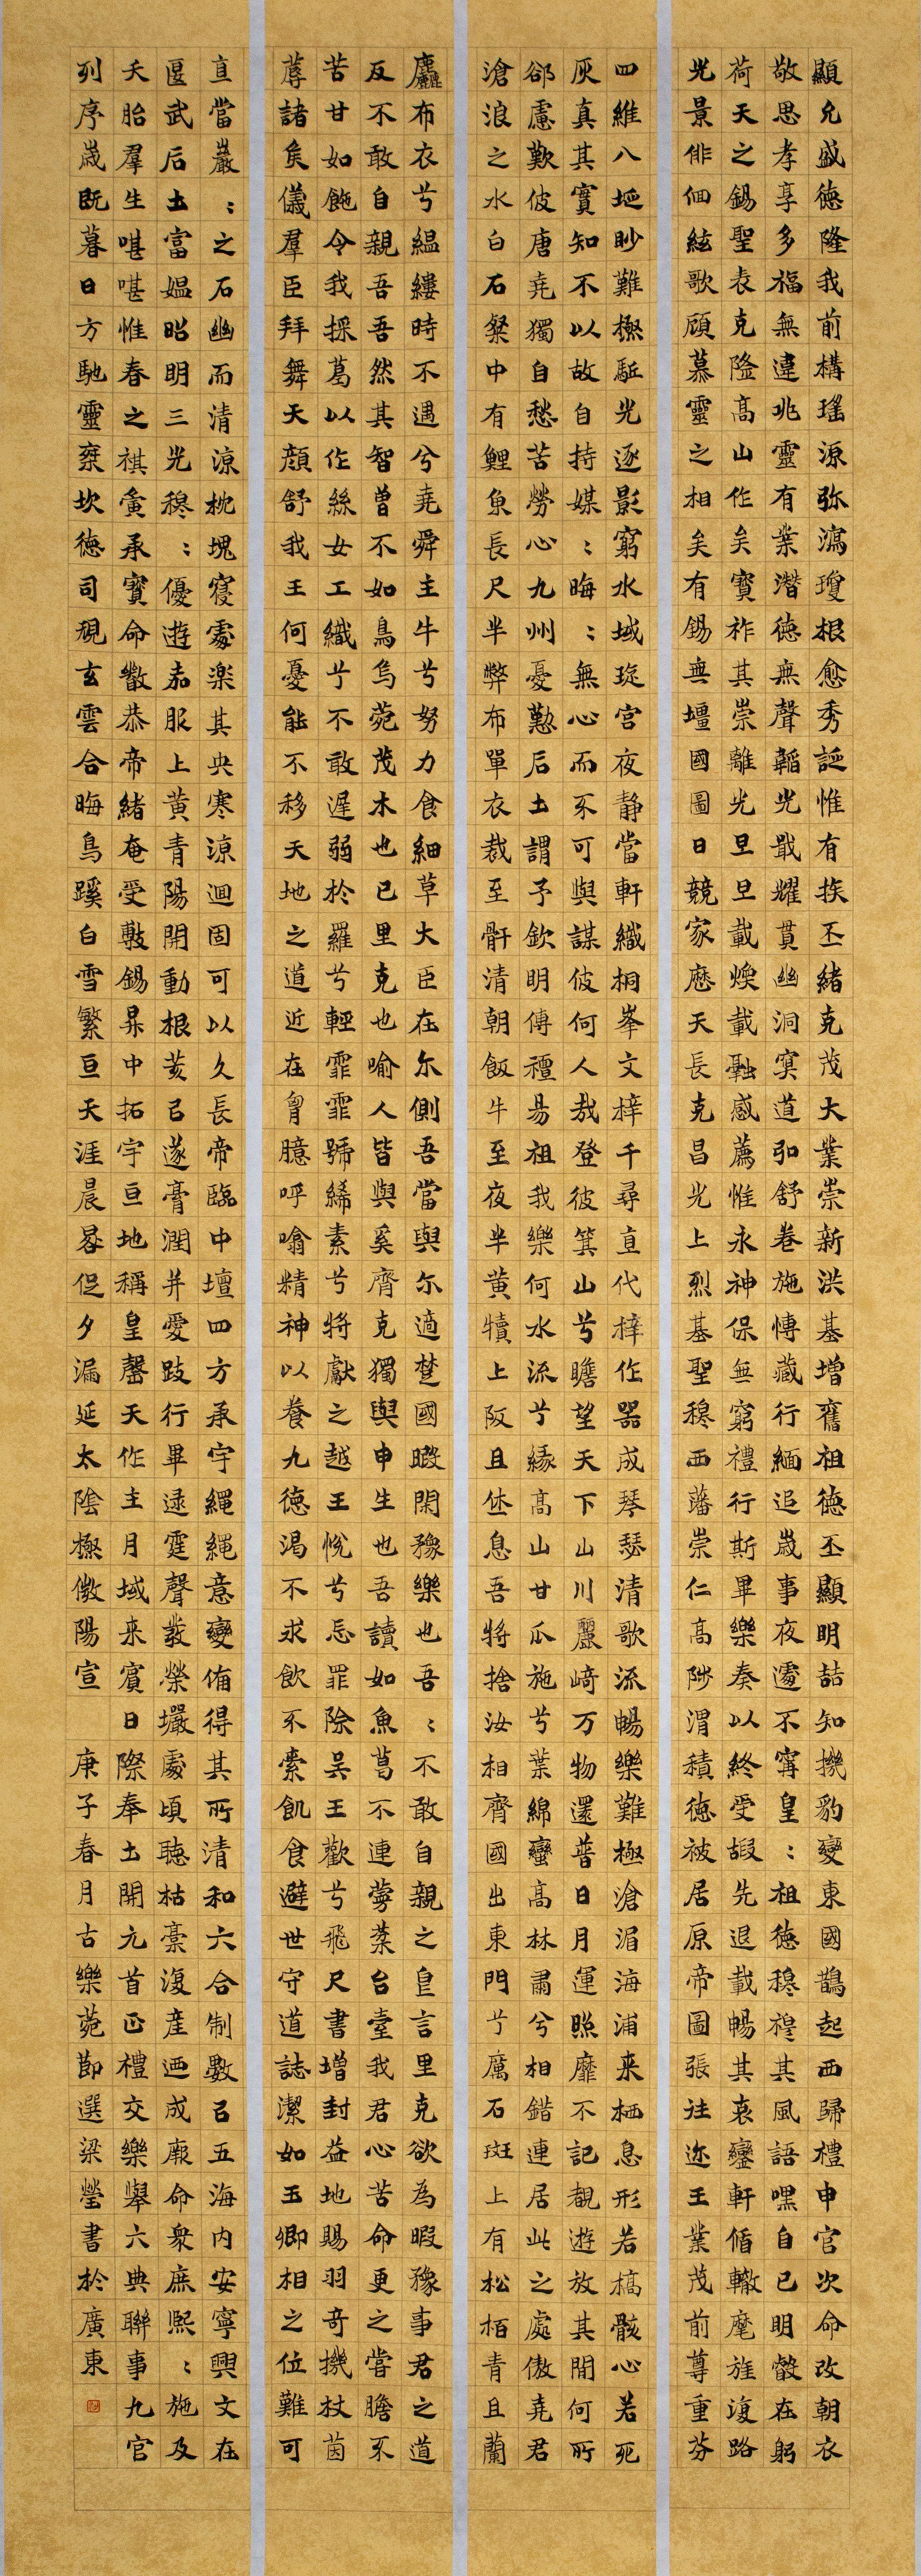 顯允盛德隆我前構瑤源弥瀉瓊根愈秀誕惟有族丕緒克茂大業崇新洪基增舊祖德丕顯明喆知機豹變東國鵲起西歸禮申官次命改朝衣
敬思孝享多福無違兆靈有業潛德無聲韜光戢耀貫幽洞冥道弘舒卷施慱藏行緬追歲事夜遽不寧皇：祖德穆穆其風語嘿自己明叡在躬
荷天之錫聖表克隆高山作矣寶祚其崇離光旦旦載煥載融感薦惟永神保無窮禮行斯畢樂奏以終受嘏先退載暢其衷鑾軒循轍麾旌復路
光景俳佪絃歌顧慕靈之相矣有錫無壃國圖日競家歷天長克昌光上烈基聖穆西藩崇仁高陟渭積德被居原帝圖張往迩王業茂前尊重芬
四維八埏眇難極駈光逐影窮水域琁宮夜静當軒織桐峯文梓千尋直代梓作器成琴瑟清歌流暢樂難極滄湄海浦来栖息形若槁骸心若死
灰真其實知不以故自持媒：晦：無心而不可與謀彼何人哉登彼箕山兮瞻望天下山川麗崎万物還普日月運照靡不記覩遊放其間何所
郤慮歎彼唐堯獨自愁苦勞心九州憂懃后土謂予欽明傳禪易祖我樂何水流兮緣高山甘瓜施兮葉綿蠻高林肅兮相錯連居此之處傲堯君
滄浪之水白石粲中有鯉魚長尺半弊布單衣裁至骭清朝飯牛至夜半黄犢上阪且休息吾將捨汝相齊國出東門兮厲石斑上有松栢青且蘭
麤布衣兮緼縷時不遇兮堯舜主牛兮努力食細草大臣在尔側吾當與尔適楚國暇閑豫樂也吾：不敢自親之皇言里克欲為暇豫事君之道
反不敢自親吾吾然其智曽不如鳥烏菀茂木也已里克也喻人皆與奚齊克獨與申生也吾讀如魚葛不連蔓葈台臺我君心苦命更之嘗膽不
苦甘如飴令我採葛以作絲女工織兮不敢遲弱於羅兮輕霏霏號絺素兮將獻之越王悅兮忌罪除吴王歡兮飛尺書增封益地賜羽奇機杖茵
蓐諸矦儀羣臣拜舞天顔舒我王何憂能不移天地之道近在胷臆呼噏精神以養九德渴不求飲不索飢食避世守道誌潔如玉卿相之位難可
直當巖：之石幽而清凉枕塊寢處楽其央寒凉迴固可以久長帝臨中壇四方承宇繩繩意變侑得其所清和六合制數㠯五海内安寧興文在
匽武后土富媪昭明三光穆：優遊嘉服上黄青陽開動根荄㠯遂膏潤并愛跂行畢逮霆聲發榮壧處頃聽枯槀復産迺成厥命衆庶熙：施及
夭胎羣生啿啿惟春之祺夤承寳命嚴恭帝緒奄受敷錫昇中拓宇亘地稱皇罄天作主月域来賓日際奉土開元首正禮交樂舉六典聯事九官
列序歲既暮日方馳靈乘坎德司規玄雲合晦鳥蹊白雪繁亘天涯晨晷促夕漏延太陰極微陽宣　庚子春月古樂菀節選梁瑩書於廣東